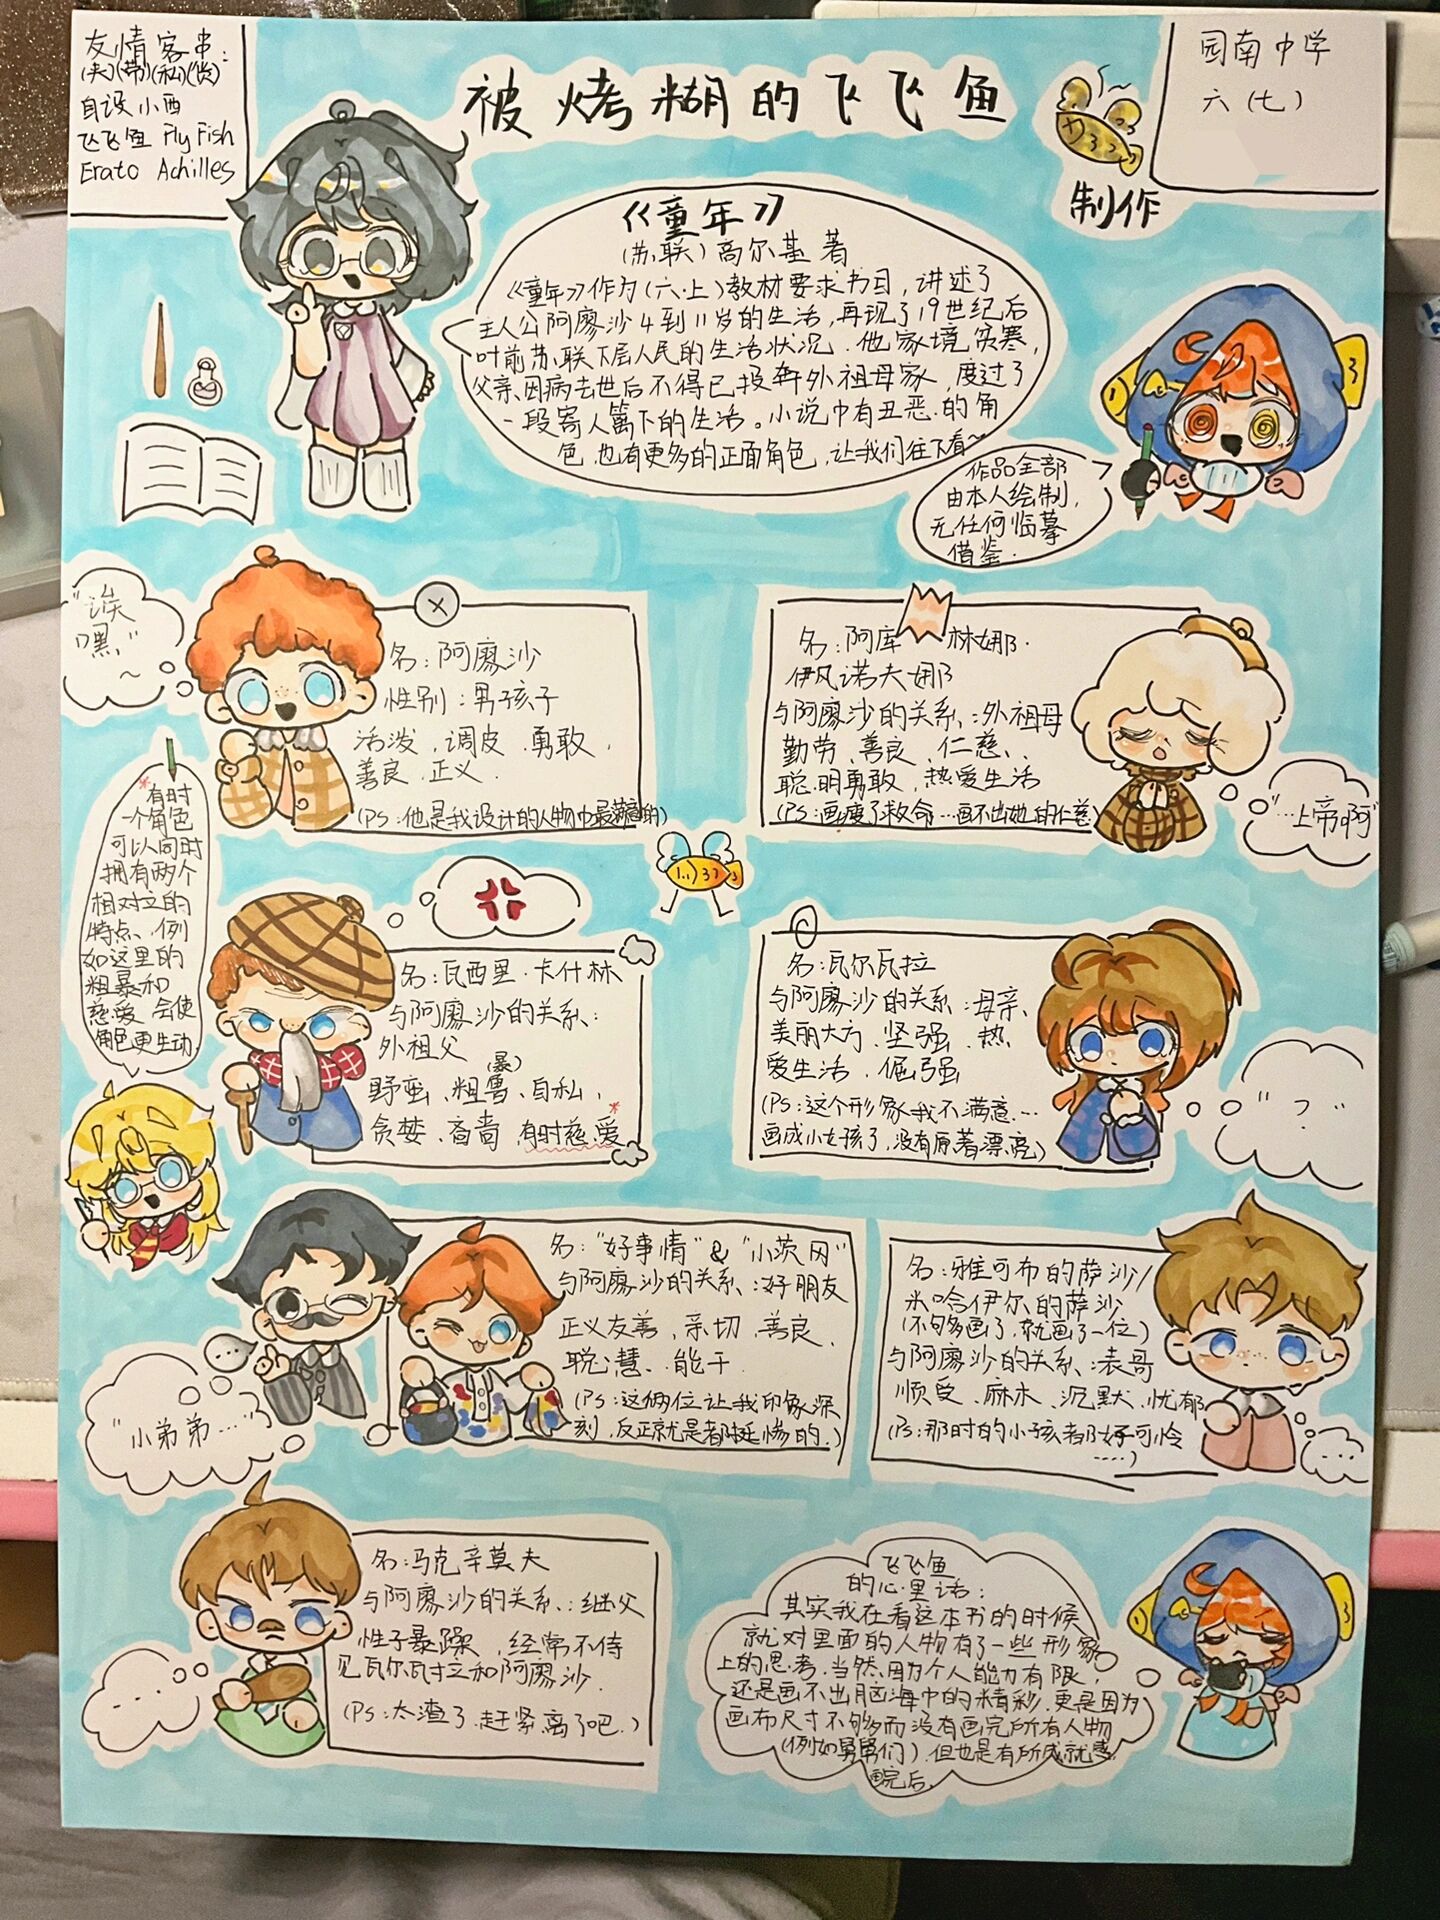 友情客串:
(夹)(带)(私)(货)
自设小西
飞飞鱼 Fly Fish
Erato Achilles
被烤糊的飞飞鱼
制作
园南中学
六(七)
《童年》
(苏联)高尔基 著
《童年》作为(六·上)教材要求书目，讲述了
主人公阿廖沙4到11岁的生活，再现了19世纪后
叶前苏联下层人民的生活状况.他家境贫寒，
父亲因病去世后不得已投奔外祖母家，度过了
一段寄人篱下的生活。小说中有丑恶的角
色，也有更多的正面角色，让我们往下看~
作品全部
由本人绘制，
无任何临摹
借鉴.
"诶
嘿"
~
名:阿廖沙
性别:男孩子
活泼，调皮.勇敢，
善良.正义.
(PS:他是我设计的人物中最满意的)
名:阿库 林娜·
伊凡诺夫娜
与阿廖沙的关系:外祖母
勤劳、善良、仁慈、
聪明勇敢，热爱生活
(PS:画瘦了救命…画不出她的仁慈)
"…上帝啊"
*有时
一个角色
可以同时
拥有两个
相对立的
特点，例
如这里的
粗暴和
慈爱，会使
角色更生动
名:瓦西里·卡什林
与阿廖沙的关系:
外祖父
(暴)
野蛮、粗鲁、自私，
贪婪、吝啬，有时慈爱*
名:瓦尔瓦拉
与阿廖沙的关系:母亲
美丽大方、坚强、热
爱生活、倔强
(PS:这个形象我不满意…
画成小女孩了，没有原著漂亮)
名:"好事情"&"小茨冈"
与阿廖沙的关系:好朋友
正义友善、亲切、善良、
聪慧、能干
(PS:这俩位让我印象深
刻，反正就是都挺惨的.)
"小弟弟……"
名:雅可布的萨沙/
米哈伊尔的萨沙
(不够画了，就画了一位)
与阿廖沙的关系:表哥
顺受、麻木、沉默、忧郁
(PS:那时的小孩都好可怜
……)
名:马克辛莫夫
与阿廖沙的关系:继父
性子暴躁，经常不待
见瓦尔瓦拉和阿廖沙.
(PS:太渣了，赶紧离了吧.)
飞飞鱼
的心里话:
其实我在看这本书的时候
就对里面的人物有了一些形象
上的思考.当然，因为个人能力有限，
还是画不出脑海中的精彩.更是因为
画布尺寸不够多而没有画完所有人物
(例如舅舅们).但也是有所成就感
画完后.